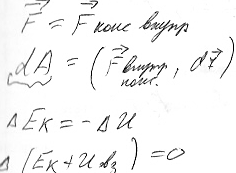 F⃗ = F⃗ конс внутр
dA = (F⃗ внутр конс., dr⃗)
ΔEк = -ΔU
Δ(Eк + U вз) = 0